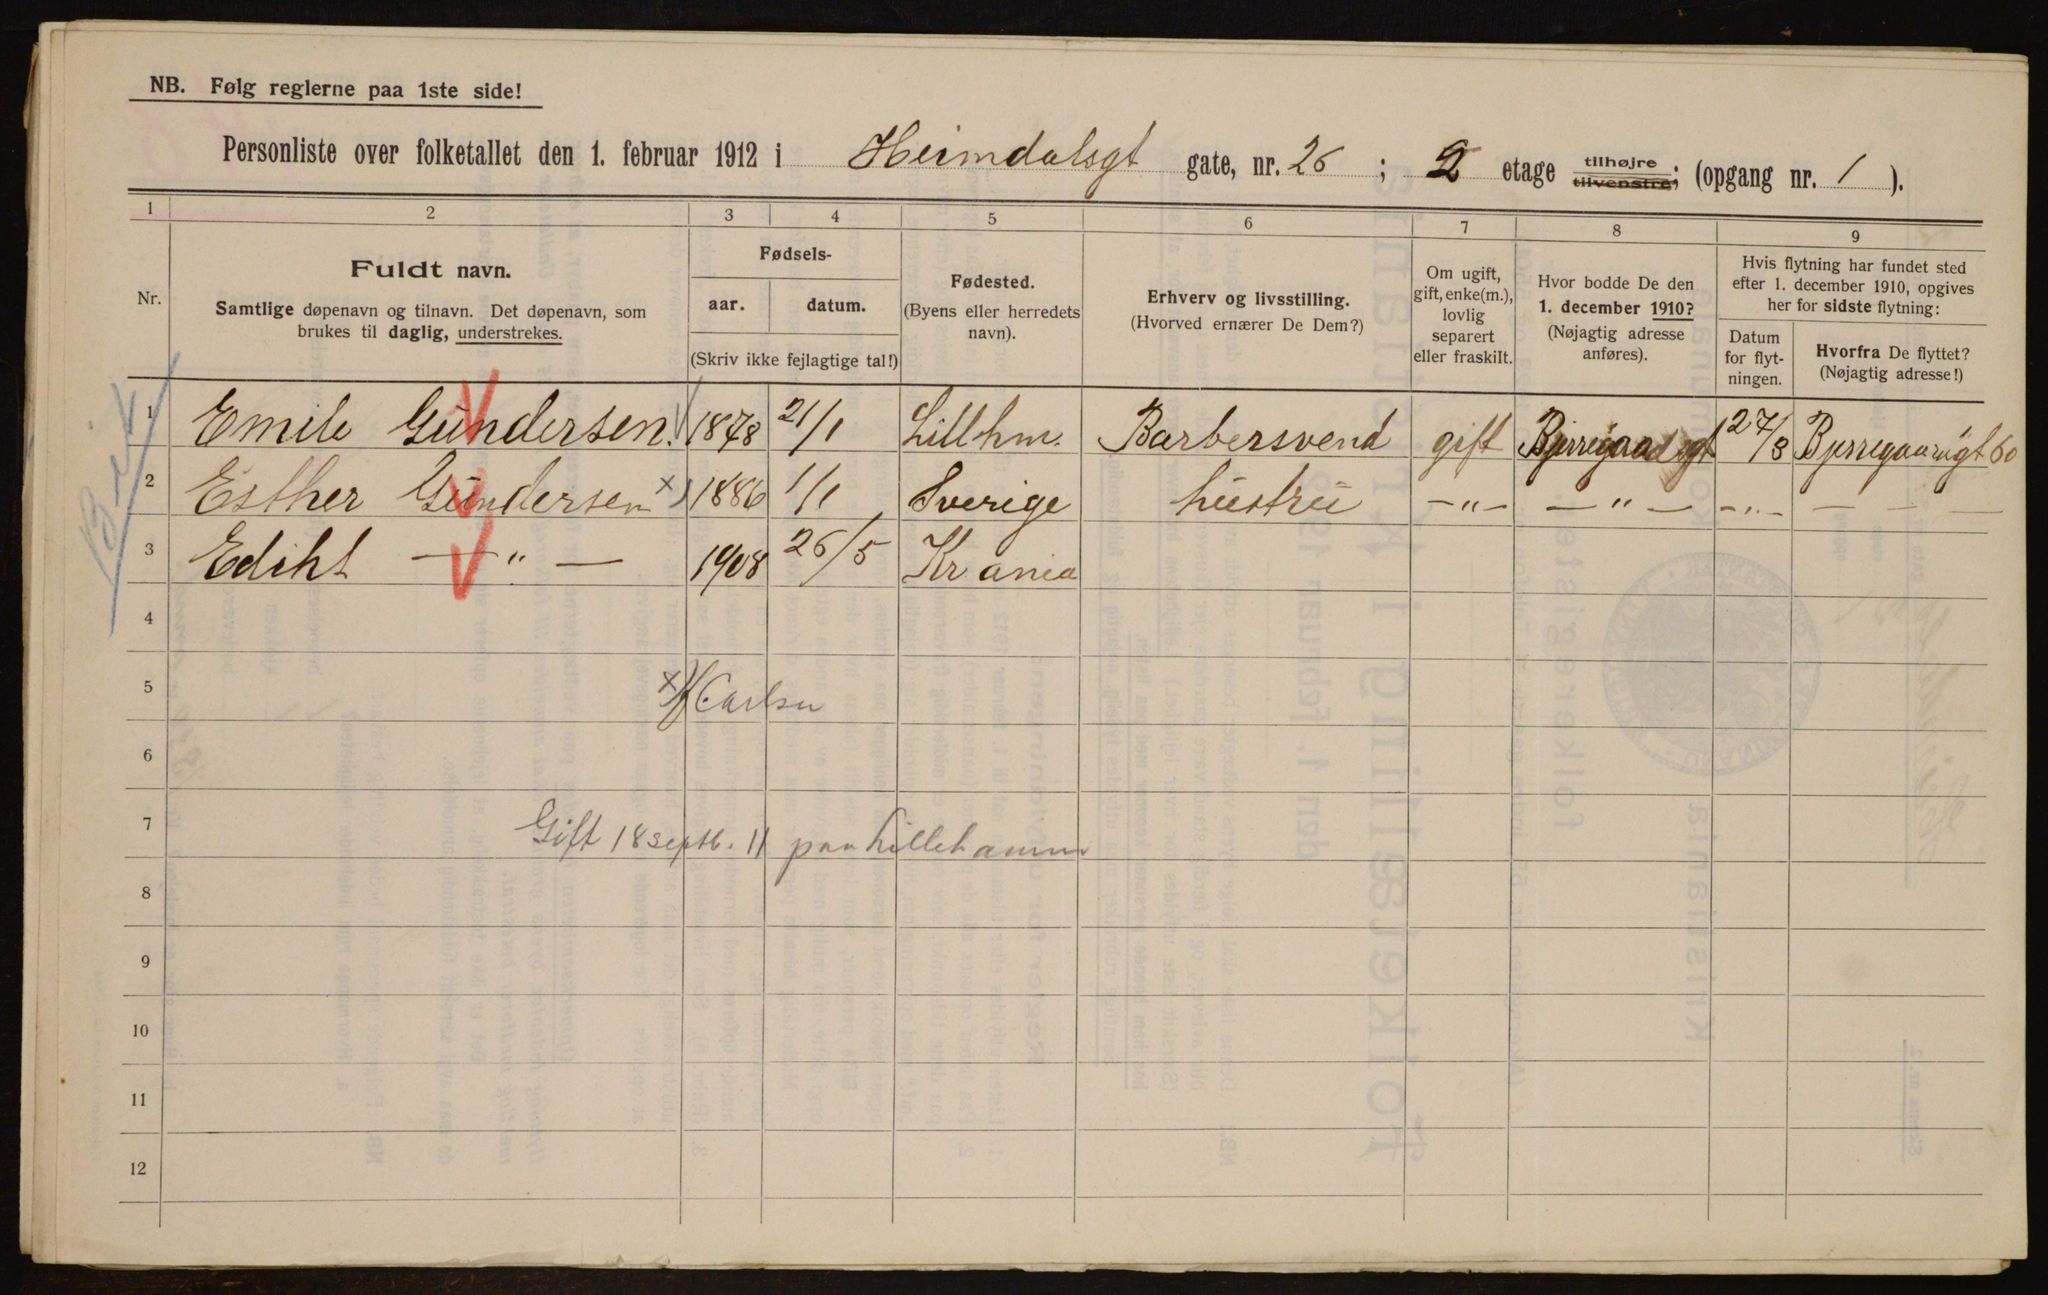 NB. Følg reglerne paa 1ste side!
Personliste over folketallet den 1. februar 1912 i Heimdalsgt gate, nr. 26 ; 2 etage tilhøjre tilvenstre; (opgang nr. 1 ).
1 2 3 4 5 6 7 8 9
Nr.
Fuldt navn.
Samtlige døpenavn og tilnavn. Det døpenavn, som
brukes til daglig, understrekes.
Fødsels-
aar. datum.
(Skriv ikke fejlagtige tal!)
Fødested.
(Byens eller herredets
navn).
Erhverv og livsstilling.
(Hvorved ernærer De Dem?)
Om ugift,
gift, enke(m.),
lovlig
separert
eller fraskilt.
Hvor bodde De den
1. december 1910?
(Nøjagtig adresse
anføres).
Hvis flytning har fundet sted
efter 1. december 1910, opgives
her for sidste flytning:
Datum
for flyt-
ningen.
Hvorfra De flyttet?
(Nøjagtig adresse!)
1 Emile Gundersen. 1878 21/1 Lillhm. Barbersvend gift Bjerregaardsgt 27/3 Bjerregaardsgt 60
2 Esther Gundersen x) 1886 1/1 Sverige hustru —"— —"— —"— — — —
3 Ediht —"— 1908 26/5 Krania
4
5 x) f. Carlsen
6
7 Gift 18 septb. 11 paa Lillehammer
8
9
10
11
12